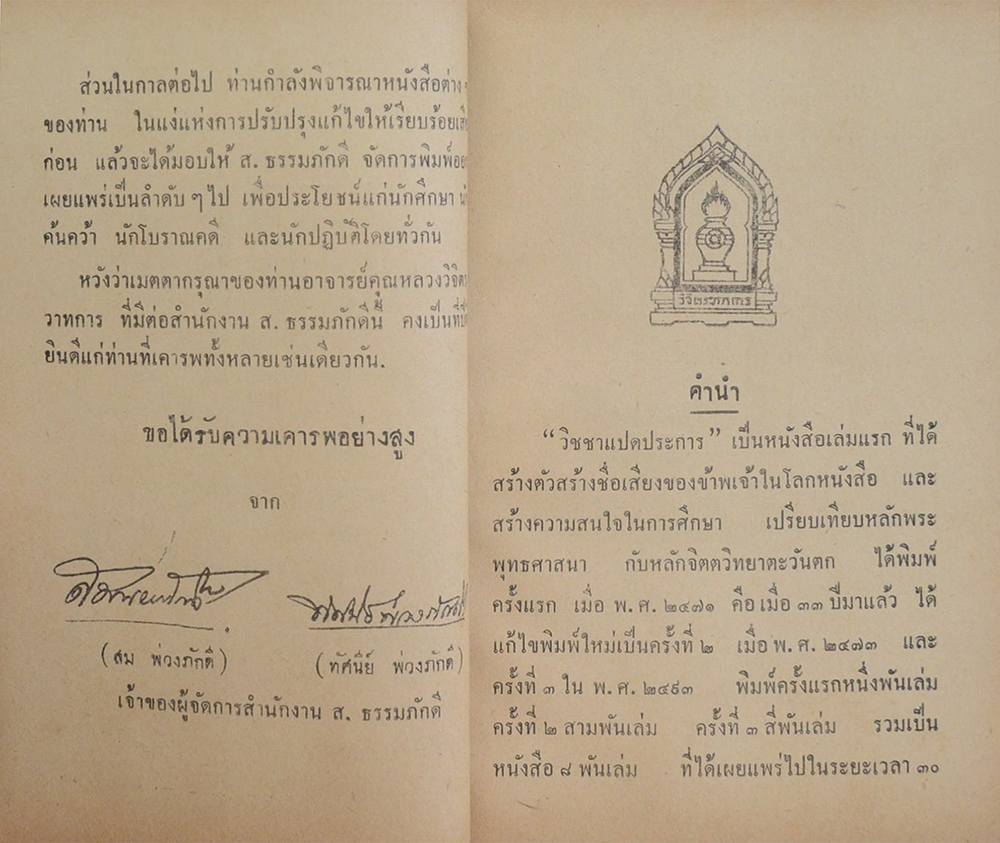 ส่วนในกาลต่อไป ท่านกำลังพิจารณาหนังสือต่าง ๆ
ของท่าน ในแง่แห่งการปรับปรุงแก้ไขให้เรียบร้อย
ก่อน แล้วจะได้มอบให้ ส. ธรรมภักดี จัดการพิมพ์
เผยแพร่เป็นลำดับ ๆ ไป เพื่อประโยชน์แก่นักศึกษา
ค้นคว้า นักโบราณคดี และนักปฏิบัติโดยทั่วกัน
หวังว่าเมตตากรุณาของท่านอาจารย์คุณหลวงวิจิตร
วาทการ ที่มีต่อสำนักงาน ส. ธรรมภักดีนี้ คงเป็นที่
ยินดีแก่ท่านที่เคารพทั้งหลายเช่นเดียวกัน.
ขอได้รับความเคารพอย่างสูง
จาก
(สม พ่วงภักดี) (ทัศนีย์ พ่วงภักดี)
เจ้าของผู้จัดการสำนักงาน ส. ธรรมภักดี
วิจิตรวาทการ
คำนำ
“วิชชาแปดประการ” เป็นหนังสือเล่มแรก ที่ได้
สร้างตัวสร้างชื่อเสียงของข้าพเจ้าในโลกหนังสือ และ
สร้างความสนใจในการศึกษา เปรียบเทียบหลักพระ
พุทธศาสนา กับหลักจิตตวิทยาตะวันตก ได้พิมพ์
ครั้งแรก เมื่อ พ.ศ. ๒๔๗๑ คือเมื่อ ๓๓ ปีมาแล้ว ได้
แก้ไขพิมพ์ใหม่เป็นครั้งที่ ๒ เมื่อ พ.ศ. ๒๔๗๓ และ
ครั้งที่ ๓ ใน พ.ศ. ๒๔๙๓ พิมพ์ครั้งแรกหนึ่งพันเล่ม
ครั้งที่ ๒ สามพันเล่ม ครั้งที่ ๓ สี่พันเล่ม รวมเป็น
หนังสือ ๘ พันเล่ม ที่ได้เผยแพร่ไปในระยะเวลา ๓๐